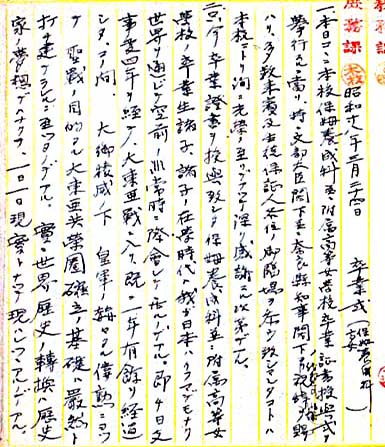 教務課
庶務課
昭和十八年三月二十四日 卒業式(保姆養成科 高女)
一、本日コヽニ本校保姆養成科並ニ附属高等女学校卒業証書授与式ヲ
挙行スルニ当リ、特ニ文部大臣閣下並ニ奈良県知事閣下ノ祝辞ヲ賜
ハリ、多数来賓及生徒保証人各位ノ御臨場ヲ忝ウ致シマシタコトハ
本校ニトリ洵ニ光栄ノ至リデアリ、深ク感謝スル次第デアル。
二、只今卒業証書ヲ授与致シタ保姆養成科並ニ附属高等女
学校ノ卒業生諸子、諸子ノ在学時代ハ我ガ日本ハ云フマデモナク
世界ヲ通ジテ空前ノ非常時ニ際会シテ居ルノデアル。即チ日支
事変四年ヲ経テ、大東亜戦ニ入リ、既ニ一年有余ヲ経過
シタ。ソノ間 大御稜威ノ下 皇軍ノ赫々タル偉勲ニヨツ
テ 聖戦ノ目的タル大東亜共栄圏確立ノ基礎ハ厳然ト
打チ建テラルヽニ至ツタノデアル。実ニ世界ノ歴史ノ転換ハ歴史
家ノ夢想デハナクテ、一日一日現実トナツテ現ハレツヽアルノデアル。